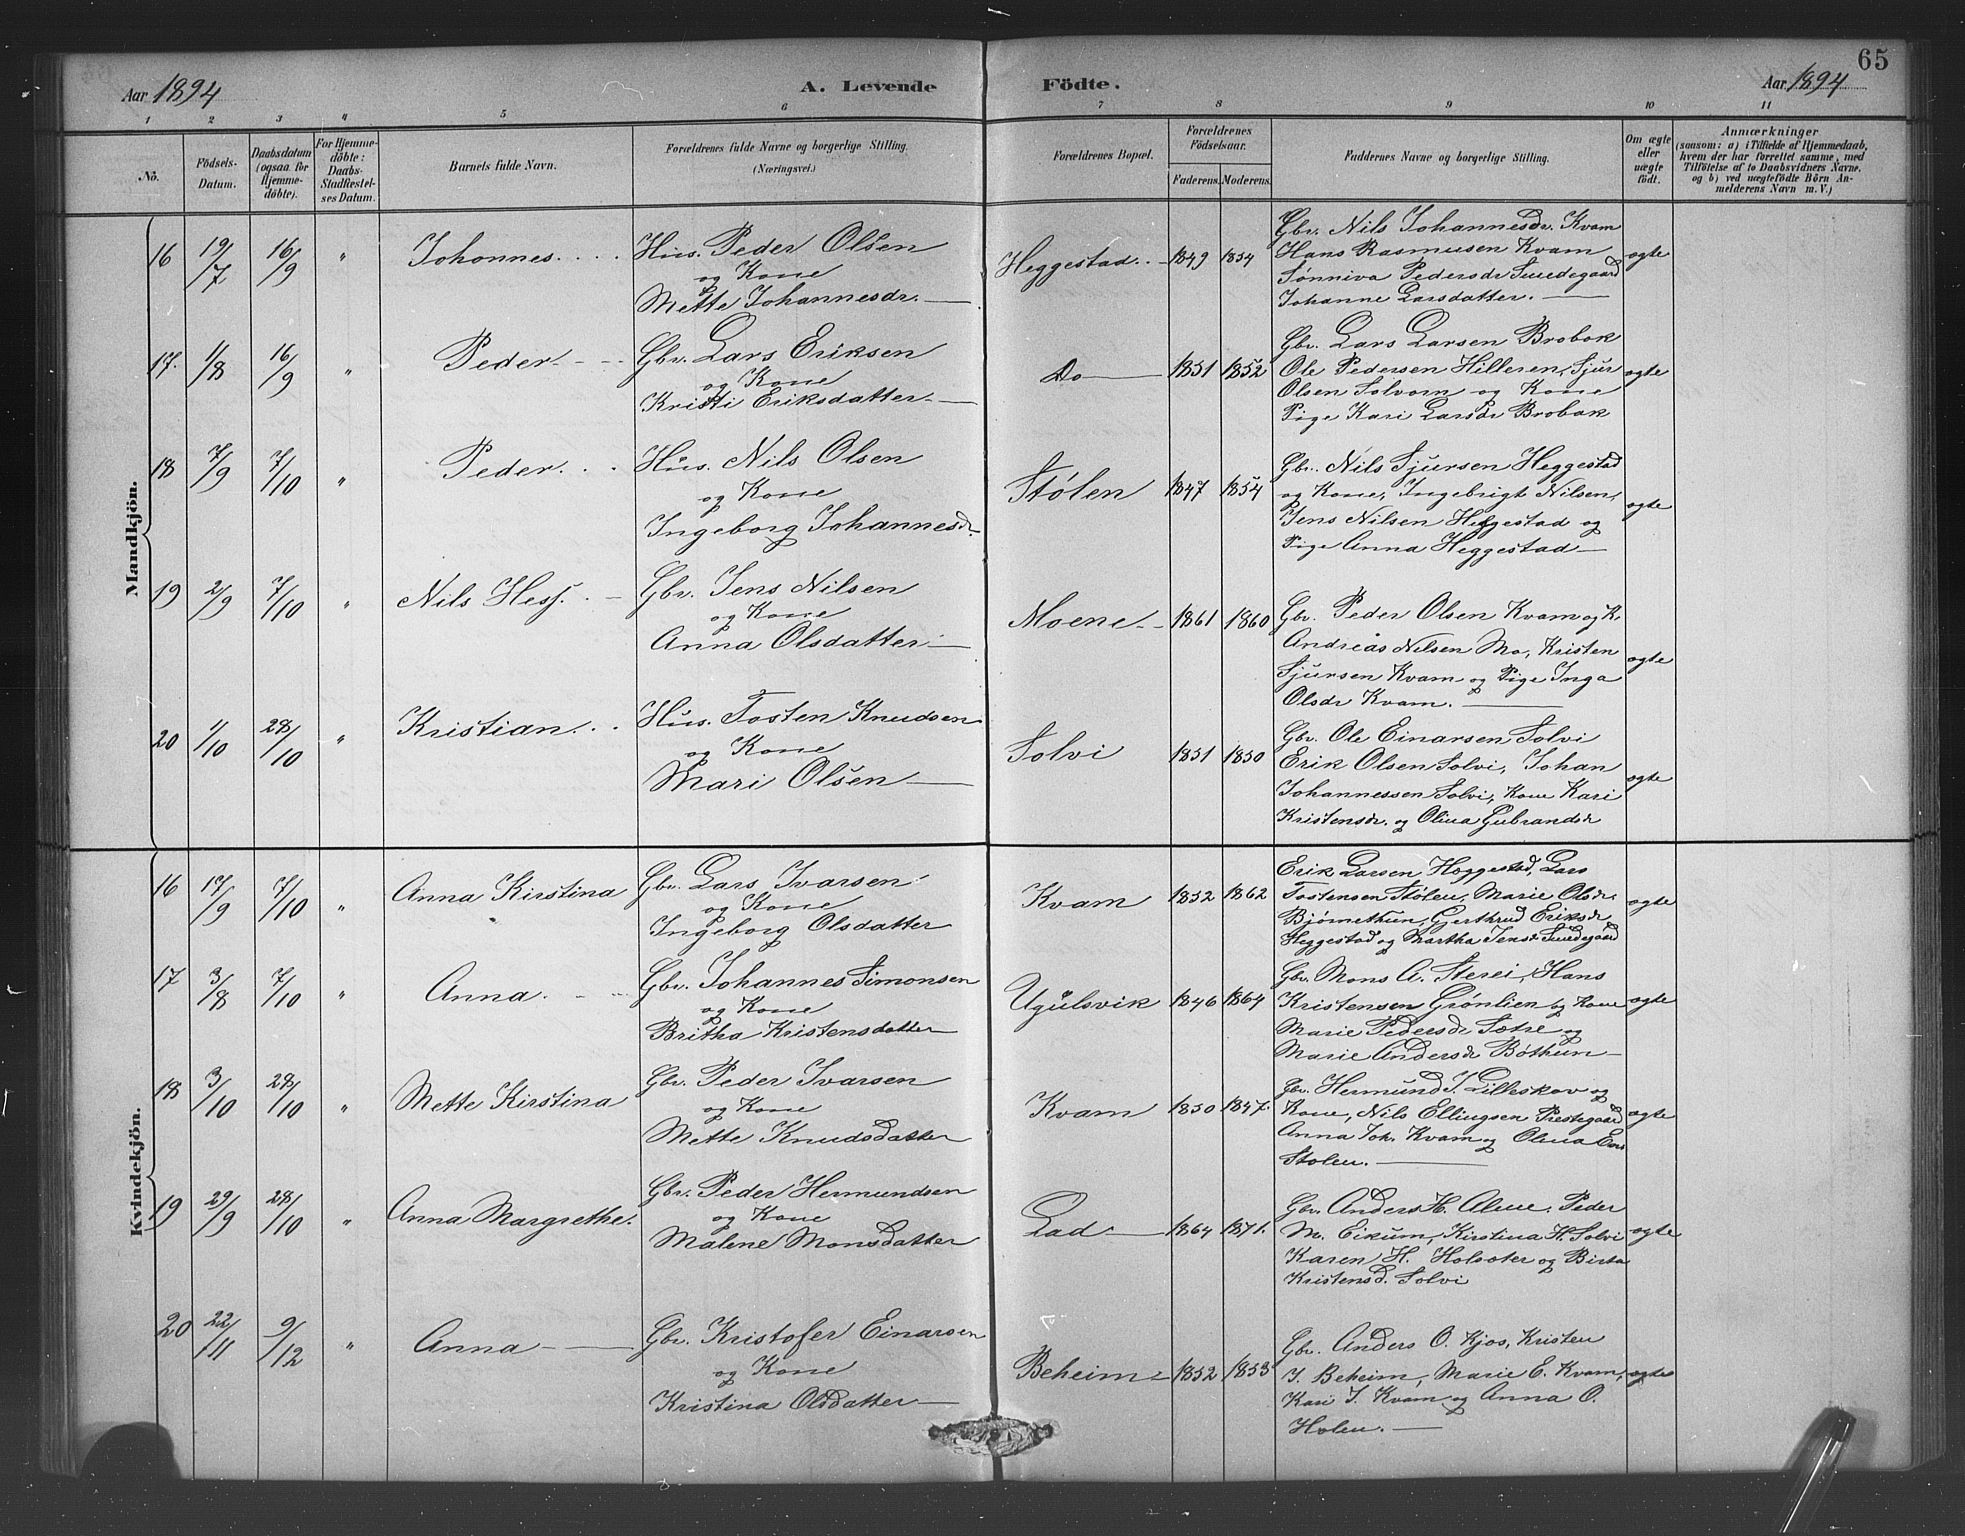 65
Aar 1894 A. Levende Födte. Aar 1894
1 2 3 4 5 6 7 8 9 10 11
No.
Födsels-Datum.
Daabsdatum (ogsaa for Hjemme-döbte).
For Hjemme-döbte: Daabs-Stadfæstel-ses Datum.
Barnets fulde Navn.
Forældrenes fulde Navne og borgerlige Stilling.
(Næringsvei.)
Forældrenes Bopæl.
Forældrenes Födselsaar.
Faderens. Moderens.
Faddernes Navne og borgerlige Stilling.
Om ægte eller uægte födt.
Anmærkninger
(saasom: a) i Tilfælde af Hjemmedaab,
hvem der har forrettet samme, med
Tilföielse af to Daabsvidners Navne.
og b) ved uægtefödte Börn An-
melderens Navn m. V.)
Mandkjön.
16 19/7 16/9 " Johannes Hus. Peder Olsen
og Kone
Mette Johannesdr.
Heggestad 1849 1854
Gbr. Nils Johannesdr. Kvam
Hans Rasmusen Kvam
Sønniva Pedersdr Smedegaard
Johanne Larsdatter.
ægte
17. 1/8 16/9 " Peder Gbr. Lars Eriksen
og Kone
Kristi Eriksdatter
Do 1851 1852
Gbr. Lars Larsen Brobak
Ole Pedersen Hilleren, Sjur
Olsen Solvorn og Kone
Pige Kari Larsdr Brobak
ægte
18 7/9 7/10 " Peder Hus. Nils Olsen
og Kone
Ingeborg Johannesdr.
Stølen 1847 1854
Gbr. Nils Sjursen Heggestad
og Kone, Ingebrigt Nilsen,
Jens Nilsen Heggestad og
Pige Anna Heggestad
ægte
19 2/9 7/10 " Nils Hesj. Gbr. Jens Nilsen
og Kone
Anna Olsdatter
Moene 1861 1860
Gbr. Peder Olsen Kvam og K.
Andreas Nilsen Mo, Kristen
Sjursen Kvam og Pige Inga
Olsdr Kvam.
ægte
20 1/10 28/10 " Kristian Hus. Tosten Knudsen
og Kone
Mari Olsen
Solvi 1851 1850
Gbr. Ole Einarsen Solvi
Erik Olsen Solvi, Johan
Johannessen Solvi, Kone Kari
Kristensdr. og Olina Gubrandsdr
ægte
Kvindekjön.
16 17/9 7/10 " Anna Kirstina Gbr. Lars Ivarsen
og Kone
Ingeborg Olsdatter
Kvam 1852 1862
Erik Larsen Hæggestad, Lars
Tostensen Stølen, Marie Olsdr.
Bjørnethun, Gjerthrud Eriksdr
Heggestad og Martha Jensdr Smedegaard
ægte
17 3/8 7/10 " Anna Gbr. Johannes Simonsen
og Kone
Britha Kristensdatter
Ugulsvik 1846 1864
Gbr. Mons A. Sterei, Hans
Kristensen Grønlien og Kone
Marie Pedersdr Sætre og
Marie Andersdr Bøthun
ægte
18 3/10 28/10 " Mette Kirstina Gbr. Peder Ivarsen
og Kone
Mette Knudsdatter
Kvam 1850 1847.
Gbr. Hermund J. Lilleskov og
Kone, Nils Ellingsen Prestegaard
Anna Joh. Kvam og Olina
Stolen.
ægte
19 29/9 28/10 " Anna Margrethe. Gbr. Peder Hermundsen
og Kone
Malene Monsdatter
Lad 1864 1871.
Gbr. Anders H. Alme, Peder
M. Eikum, Kirstina H. Solvi
Karen H. Holsæter og Birta
Kristensd. Solvi
ægte
20 22/11 9/12 " Anna Gbr. Kristofer Einarsen
og Kone
Kristina Olsdatter
Beheim 1852 1853
Gbr. Anders O. Kjos, Kristen
J. Beheim, Marie E. Kvam,
Kari J. Kvam og Anna O.
Holen.
ægte